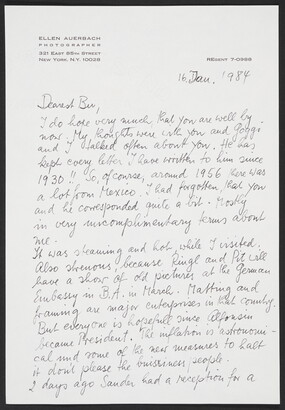 ELLEN AUERBACH
PHOTOGRAPHER
321 EAST 85TH STREET
NEW YORK, N.Y. 10028
REGENT 7-0988
16 Jan. 1984
Dearest
I do hope very much, that you are well by
now. My thoughts were with you and
and I talked often about you. He has
kept every letter I have written to him since
1930!! So, of course, around 1956 there was
a lot from Mexico. I had forgotten, that you
and he corresponded quite a bit - Mostly
in very uncomplimentary terms about
me.
It was steaming and hot, while I visited.
Also strenuous, because Ringl and Pit will
have a show of old pictures at the German
Embassy in B.A. in March. Matting and
framing are major enterprises in that country.
But everyone is hopefull since Alfonsin
became President. The inflation is astronomi-
cal and some of the new measures to halt
it dont please the bussiness people.
2 days ago Sander had a reception for a